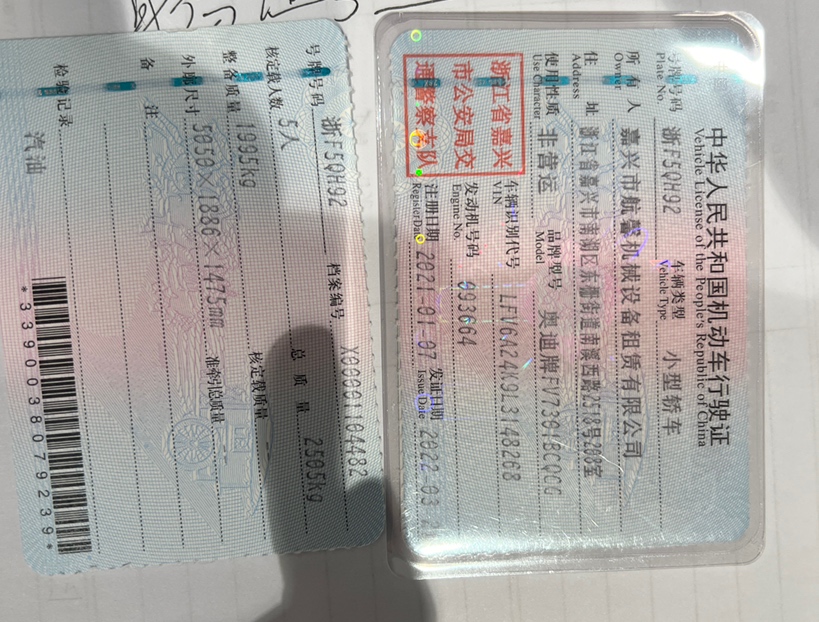 中华人民共和国机动车行驶证
Vehicle License of the People's Republic of China
号牌号码 浙F5QH92 车辆类型 小型轿车
Plate No. Vehicle Type
所有人 嘉兴市航馨机械设备租赁有限公司
Owner
住址 浙江省嘉兴市南湖区东栅街道南溪西路2518号208室
Address
使用性质 非营运 品牌型号
Use Character Model
奥迪牌
浙江省嘉兴
市公安局交
通警察支队
车辆识别代号
VIN LFV6A24K9L3148268
发动机号码 993664
Engine No.
注册日期 2021-01-07 发证日期 2022-03
Register Date Issue Date
号牌号码 浙F5QH92 档案编号
核定载人数 5人 总质量 2505kg
整备质量 1995kg 核定载质量
外廓尺寸 5050×1886×1475mm 准牵引总质量
备注
检验记录
汽油
*3390038079239*